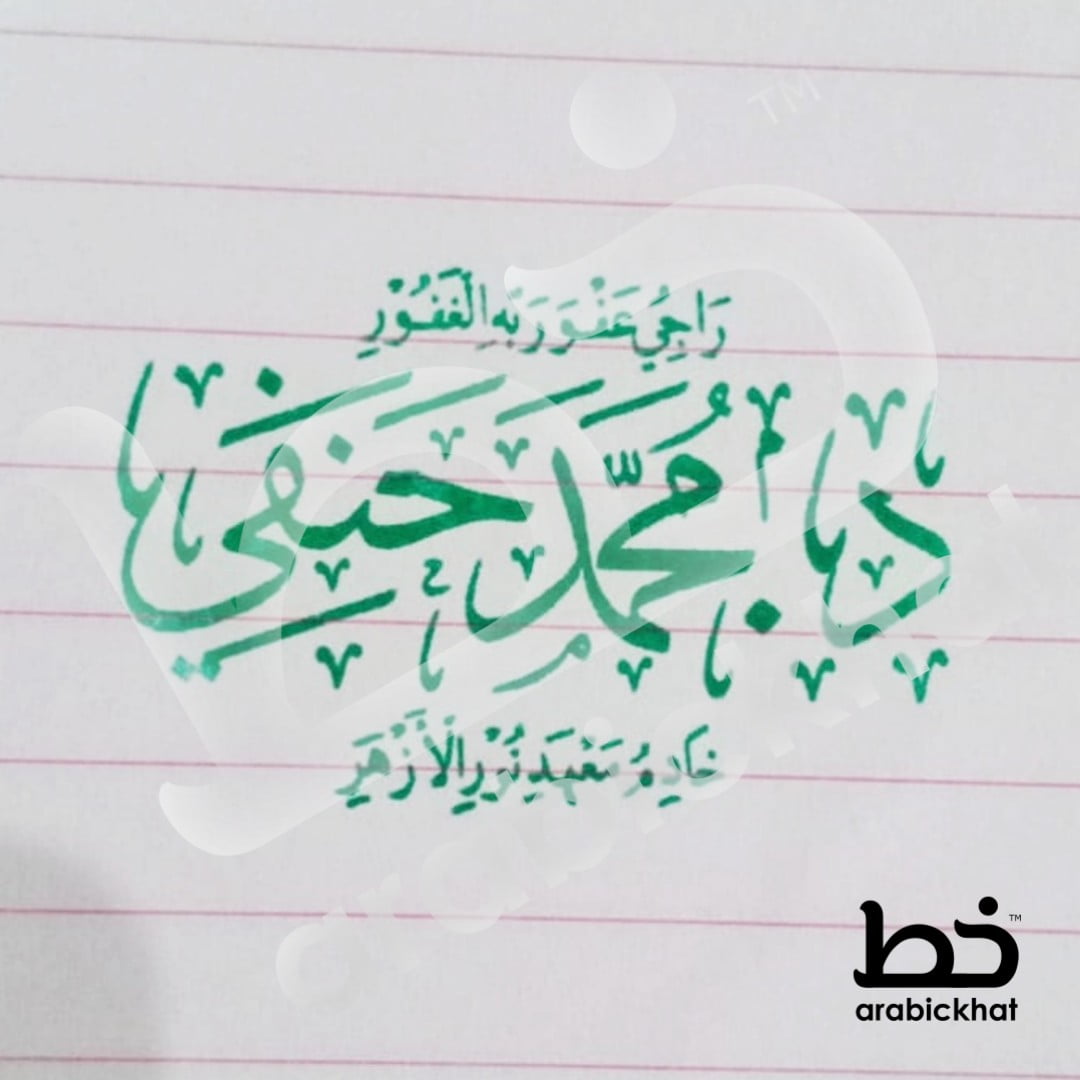 رَاجِيُ عَفْوَ رَبِّهِ الْغَفُوْرِ
د ا. مُحَمَّد حَنَفِي
خَادِمُ مَعْهَدِ نُوْرِ الْأَزْهَرِ
خط ™
arabickhat